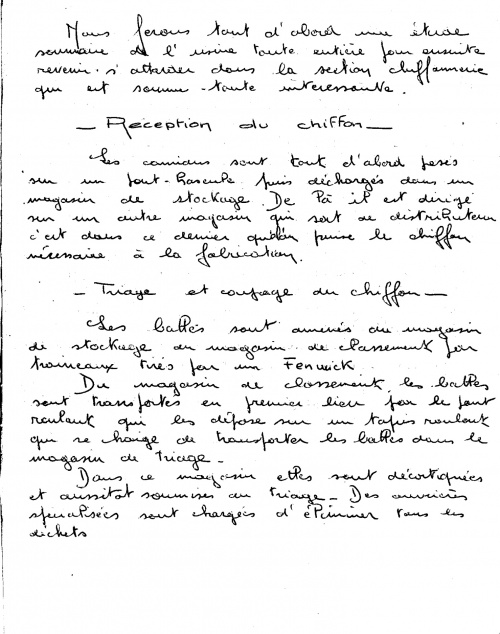 Nous ferons tout d'abord une étude
sommaire de l'usine toute entière pour ensuite
revenir s'attarder dans la section chiffonnerie
qui est somme-toute interessante.
— Réception du chiffon —
Les camions sont tout d'abord pesés
sur un pont-bascule puis déchargés dans un
magasin de stockage. De là il est dirigé
sur un autre magasin qui sert de distributeur
c'est dans ce dernier qu'on puise le chiffon
nécessaire à la fabrication.
— Triage et coupage du chiffon —
Les balles sont amenés du magasin
de stockage au magasin de classement par
traineaux tirés par un Fenwick.
Du magasin de classement les balles
sont transportés en premier lieu par le pont
roulant qui les dépose sur un tapis roulant
qui se charge de transporter les balles dans le
magasin de triage.
Dans ce magasin elles sont décortiquées
et aussitot soumises au triage - Des ouvrières
spécialisées sont chargées d'éliminer tous les
déchets